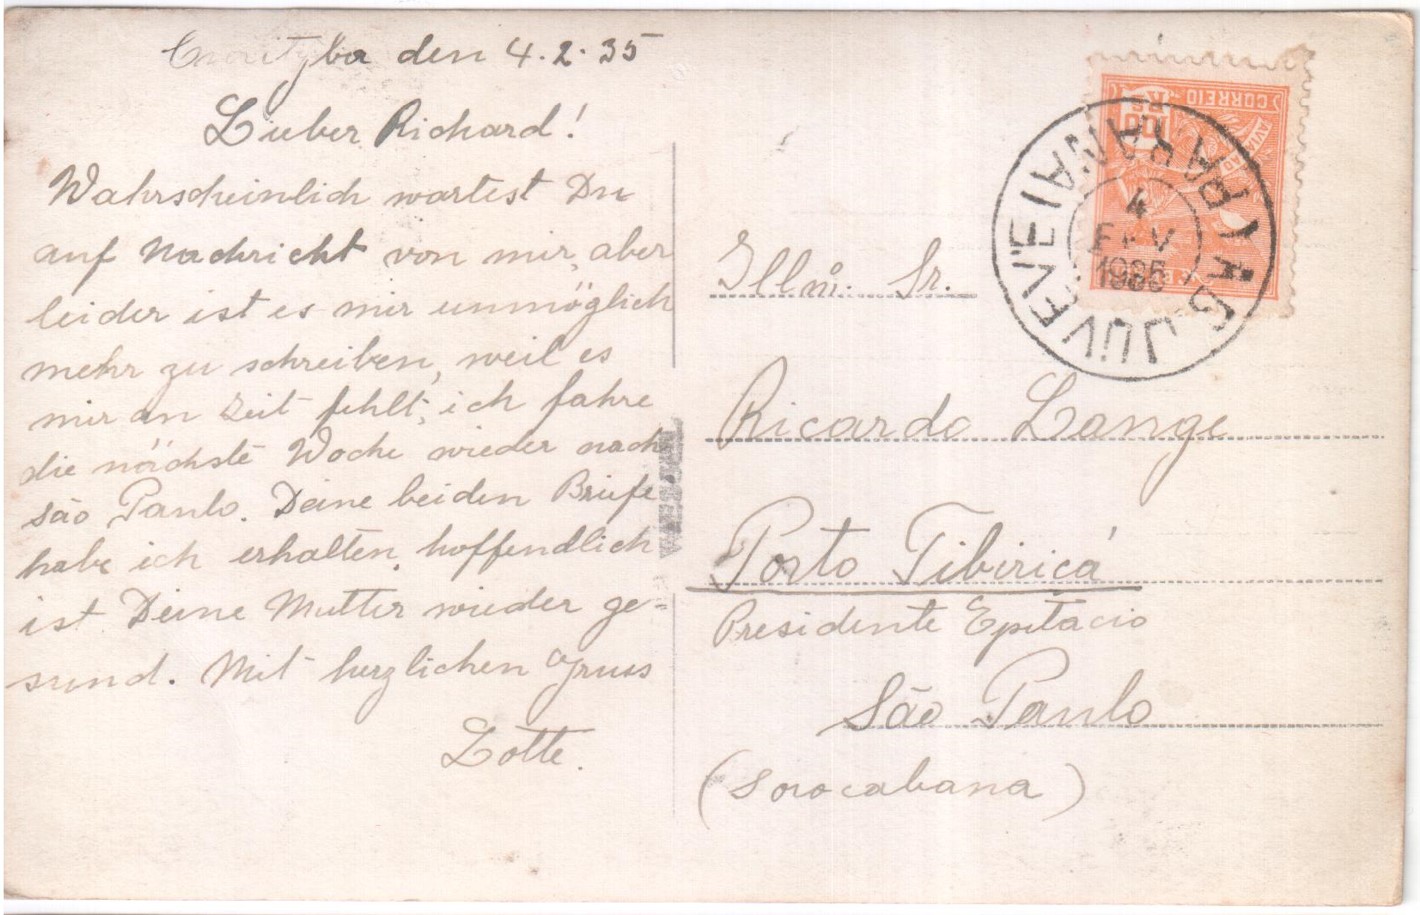 Curityba den 4.2.35
Lieber Richard!
Wahrscheinlich wartest Du
auf Nachricht von mir, aber
leider ist es mir unmöglich
mehr zu schreiben, weil es
mir an Zeit fehlt, ich fahre
die nächste Woche wieder nach
São Paulo. Deine beiden Briefe
habe ich erhalten, hoffendlich
ist Deine Mutter wieder ge=
sund. Mit herzlichen Gruss
Lotte.
CORREIO
100 Rs
AVIAÇÃO
JUVEVE
(PARANA)
4
FEV
1935
Illmº. Sr.
Ricardo Lange
Porto Tibiriçá
Presidente Epitácio
São Paulo
(Sorocabana)